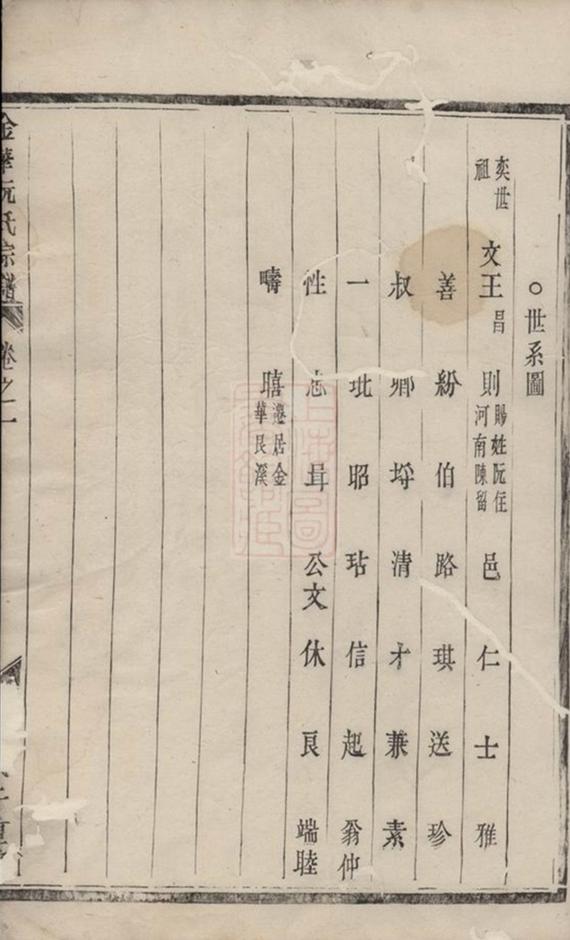 ○世系圖
奕世祖 文王昌 則 賜姓阮住河南陳留 邑 仁 士 雅
善 紛 伯 路 琪 送 珍
叔 鄉 垺 清 才 兼 素
一 玭 昭 玷 信 起 翁仲
性 志 耳 公文 休 良 端睦
疇 暿 遷居金華長溪
金華阮氏宗譜 卷之一